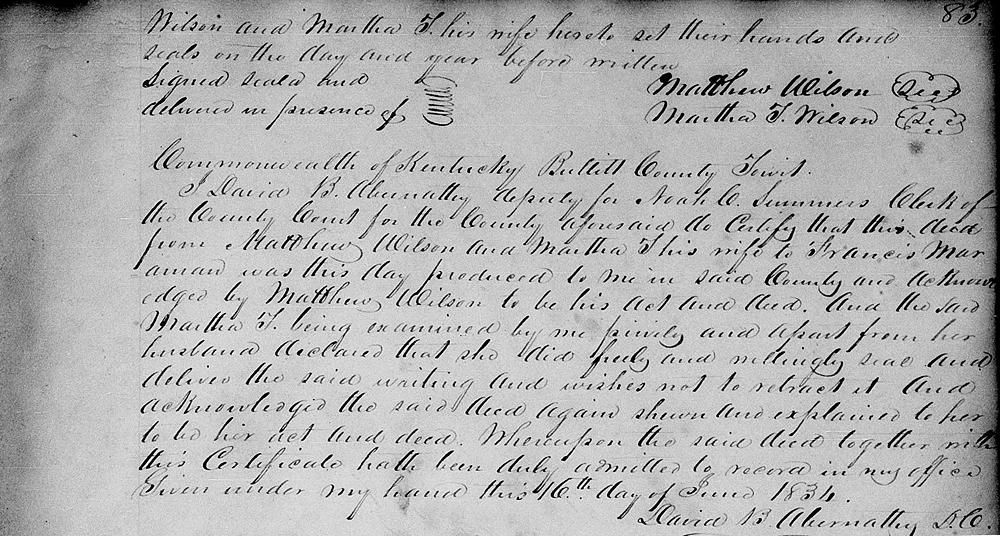 83.
Wilson and Martha T. his wife hereto set their hands and
seals on the day and year before written
Signed seald and
delivered in presence of
Matthew Wilson
Martha T. Wilson
Commonwealth of Kentucky Bullitt County Towit.
I David B. Abernathy deputy for Noah C. Summers Clerk of
the County Court for the County aforesaid do Certify that this deed
from Matthew Wilson and Martha T his wife to Francis Mar
aman was this day produced to me in said County and acknowl
edged by Matthew Wilson to be his act and deed. And the said
Martha T. being examined by me privily and apart from her
husband declared that she did freely and willingly seal and
deliver the said writing and wishes not to retract it And
acknowledged the said deed again shewn and explained to her
to be her act and deed. Whereupon the said deed together with
this Certificate hath been duly admitted to record in my office
Given under my hand this 16th day of June 1834.
David B. Abernathy D.C.